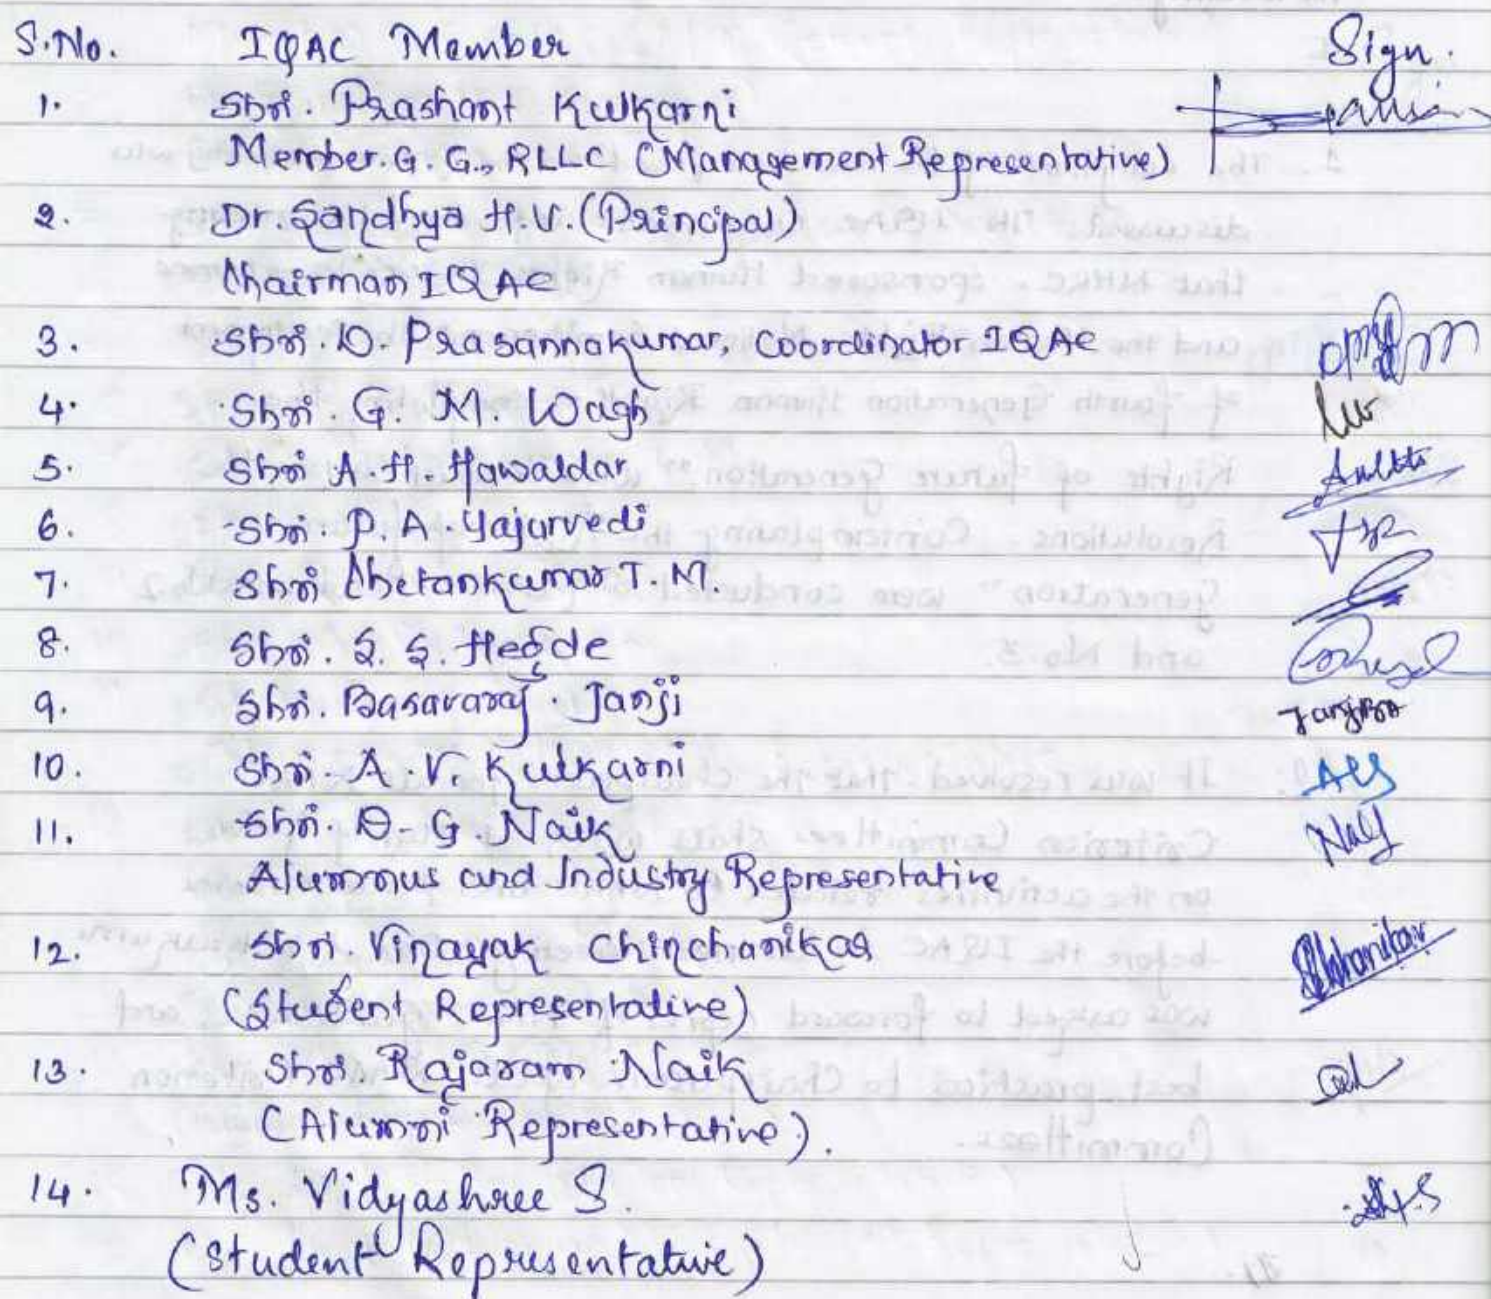 S.No. IQAC Member Sign.
1. Shri. Prashant Kulkarni
Member. G. G., RLLC (Management Representative)
2. Dr. Sandhya H.V. (Principal)
Chairman IQAC
3. Shri. D. Prasannakumar, Coordinator IQAC
4. Shri. G. M. Wagh
5. Shri A. H. Hawaldar
6. Shri. P. A. Yajurvedi
7. Shri Chetankumar T. M.
8. Shri. S. S. Hegde
9. Shri. Basavaraj Janji
10. Shri. A. V. Kulkarni
11. Shri. D. G. Naik
Alumnus and Industry Representative
12. Shri. Vinayak Chinchanikar
(Student Representative)
13. Shri. Rajaram Naik
(Alumni Representative).
14. Ms. Vidyashree S.
(Student Representative)